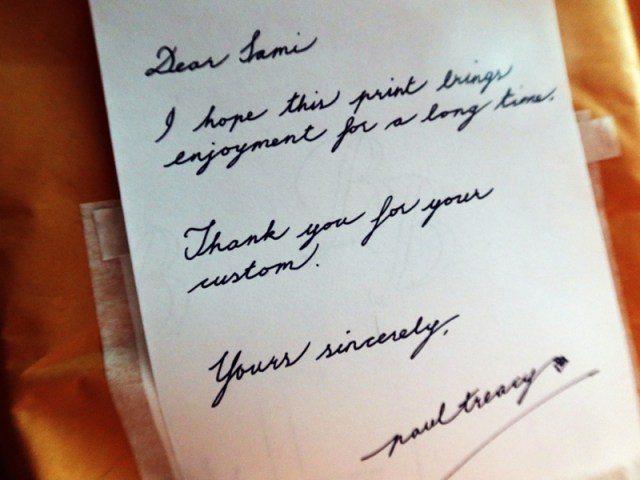 Dear Sami
I hope this print brings
enjoyment for a long time.
Thank you for your
custom.
Yours sincerely,
paul treacy